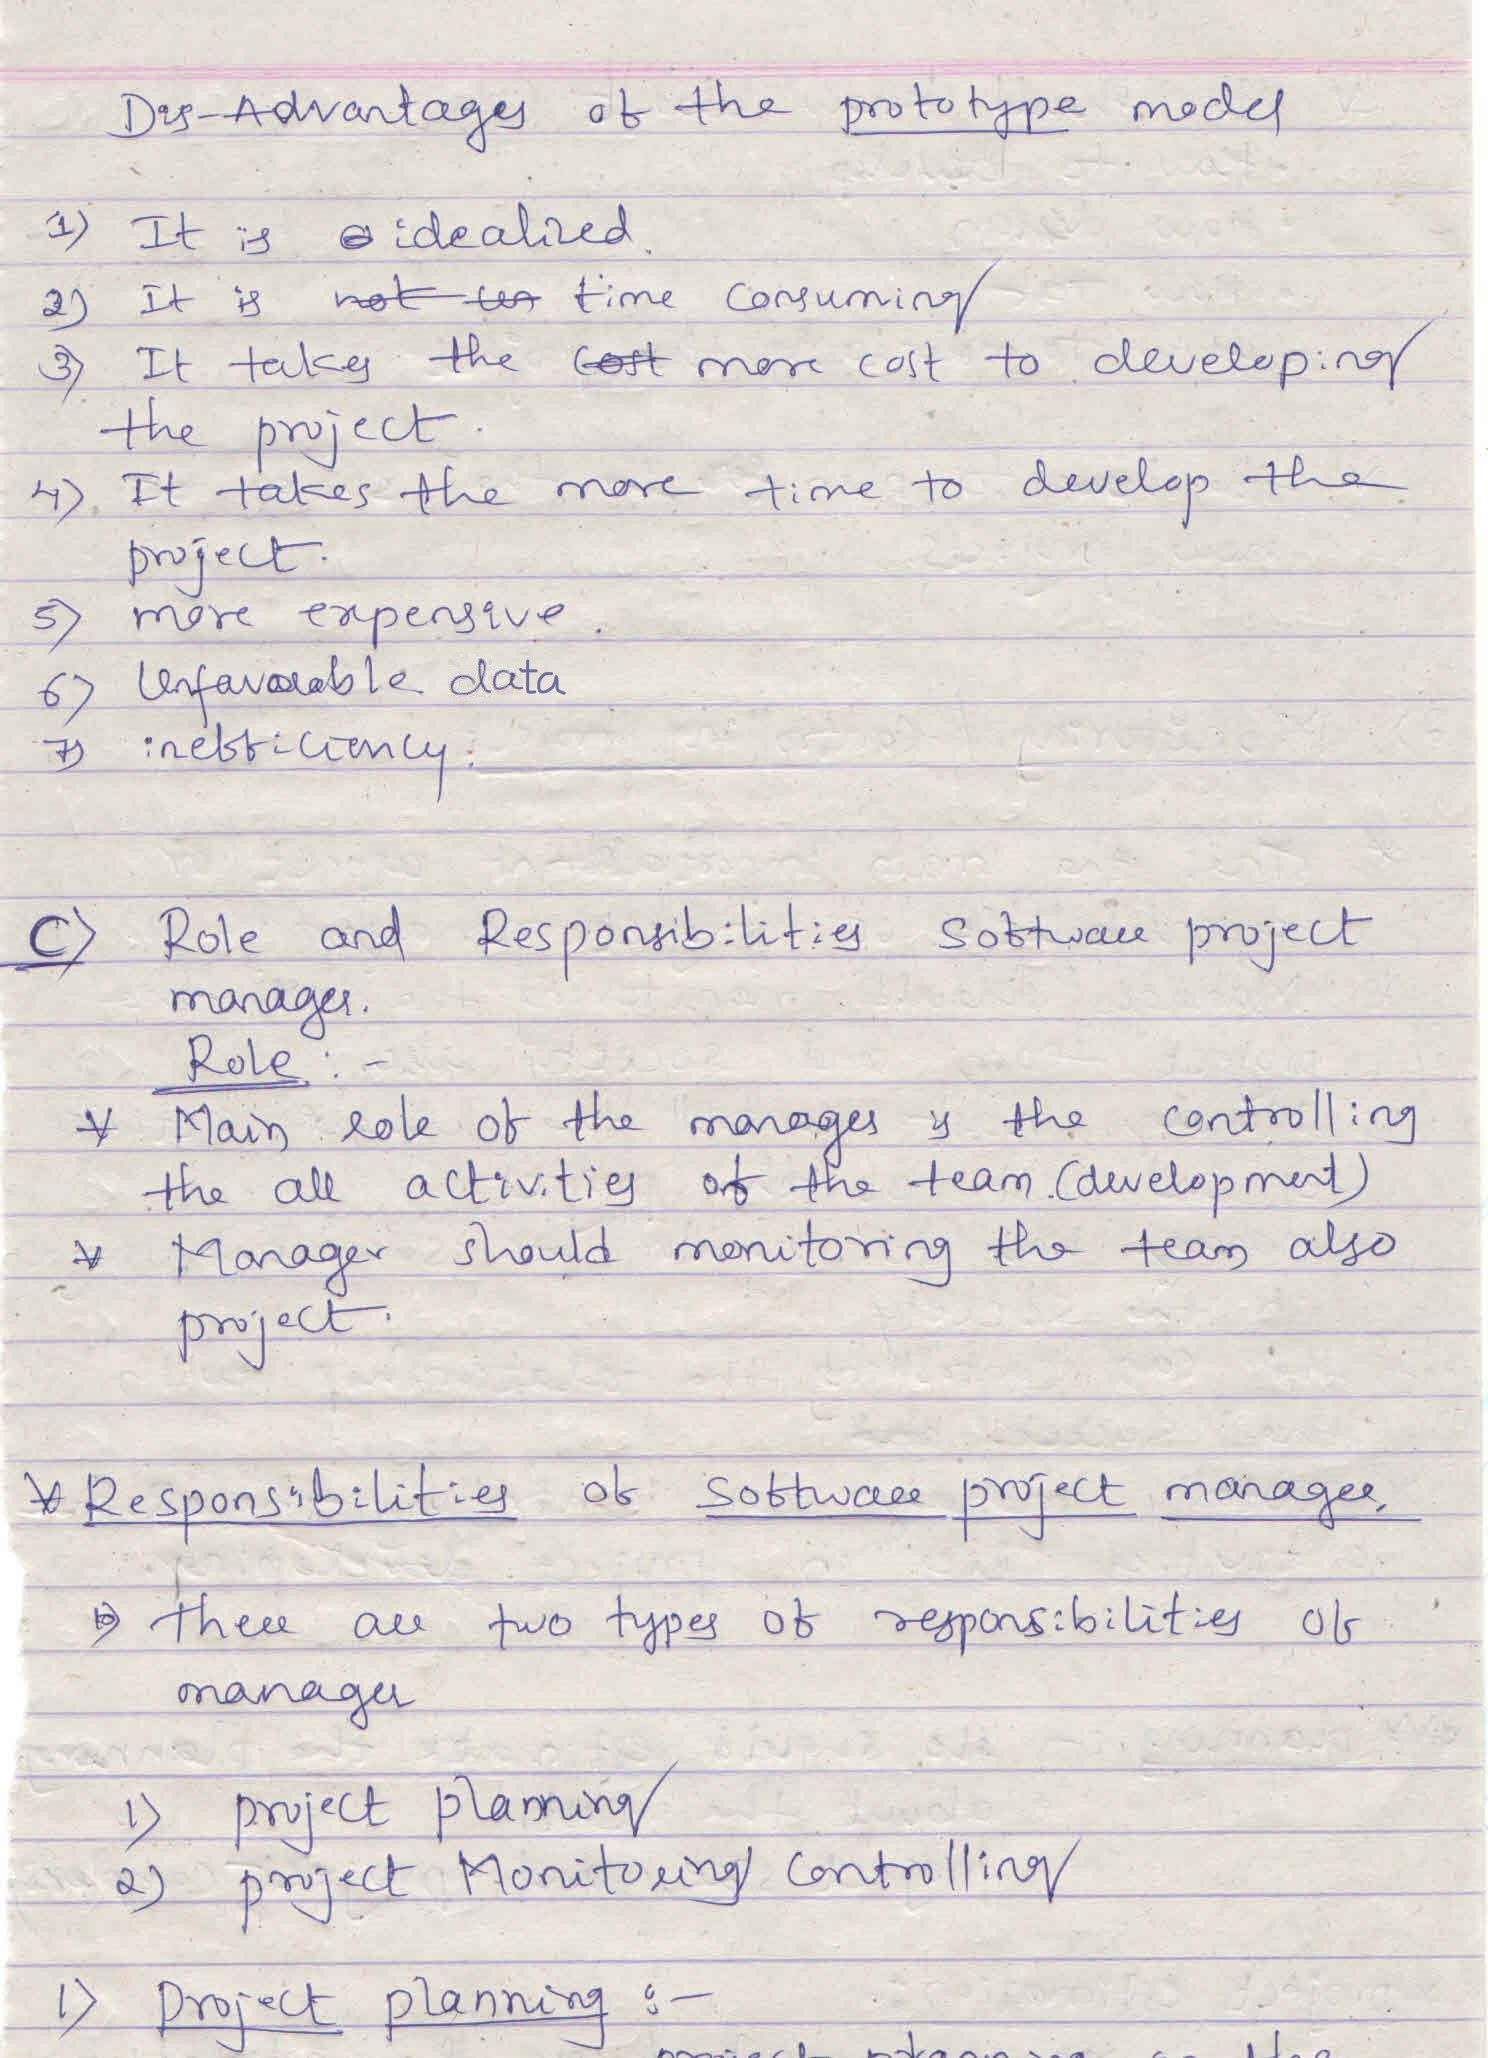 Dis-Advantages of the prototype model
1) It is idealized.
2) It is not time consuming
3) It takes the cost more cost to developing
the project.
4) It takes the more time to develop the
project.
5) more expensive.
6) Unfavourable data
7) inefficiency.
C) Role and Responsibilities Software project
manager.
Role :-
* Main role of the manager is the controlling
the all activities of the team.(development)
* Manager should monitoring the team also
project.
* Responsibilities of Software project manager.
there are two types of responsibilities of
manager
1) project planning
2) project Monitoring controlling
1) Project planning :-
project planning is the